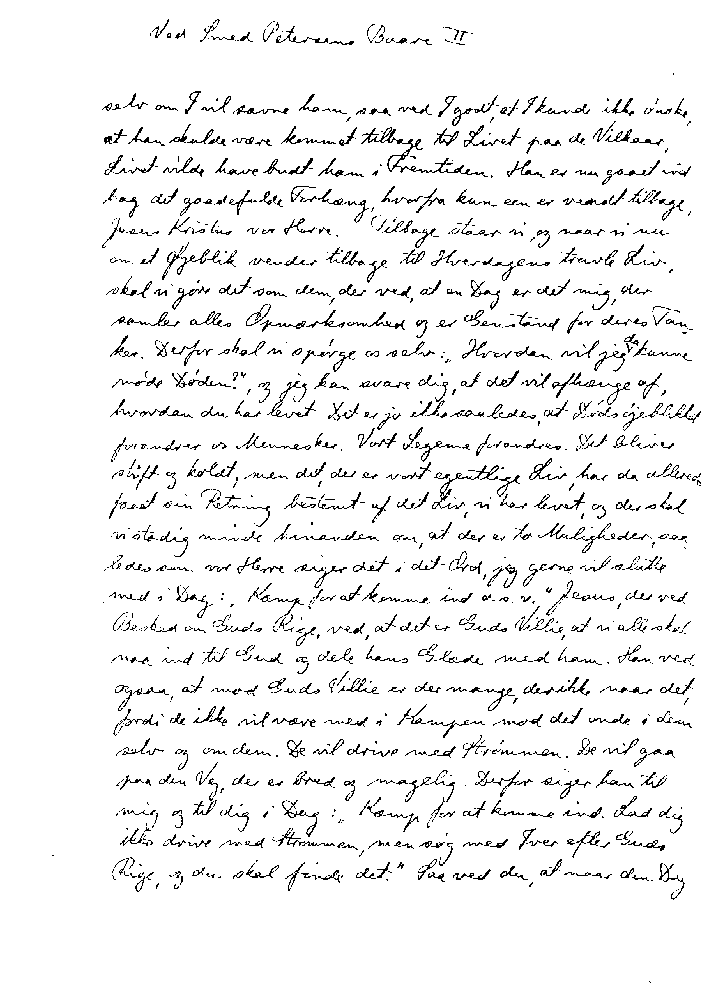 Ved Smed Petersens Baare II
selv om I vil savne ham, saa ved I godt, at I kunde ikke ønske,
at han skulde være kommet tilbage til Livet paa de Vilkaar,
Livet vilde have budt ham i Fremtiden. Han er nu gaaet ind
bag det gaadefulde Forhæng, hvorfra kun een er vendt tilbage,
Jesus Kristus vor Herre. Tilbage staar vi, og naar vi nu
om et Øjeblik vender tilbage til Hverdagens travle Liv,
skal vi gøre det som dem, der ved, at en Dag er det mig, der
samler alles Opmærksomhed og er Genstand for deres Tan-
ker. Derfor skal vi spørge os selv: „Hvordan vil jeg da kunne
møde Døden?", og jeg kan svare dig, at det vil afhænge af,
hvordan du har levet. Det er jo ikke saaledes, at Dødsøjeblikket
forandrer os Mennesker. Vort Legeme forandres. Det bliver
stift og koldt, men det, der er vort egentlige Liv, har da allerede
faaet sin Retning bestemt af det Liv, vi har levet, og der skal
vi stadig minde hinanden om, at der er to Muligheder, saa-
ledes som vor Herre siger det i det Ord, jeg gerne vil slutte
med i Dag: „Kæmp for at komme ind o.s.v." Jesus, der ved
Besked om Guds Rige, ved, at det er Guds Villie, at vi alle skal
naa ind til Gud og dele hans Glæde med ham. Han ved
ogsaa, at mod Guds Villie er der mange, der ikke naar det,
fordi de ikke vil være med i Kampen mod det onde i dem
selv og om dem. De vil drive med Strømmen. De vil gaa
paa den Vej, der er bred og magelig. Derfor siger han til
mig og til dig i Dag: „Kæmp for at komme ind. Lad dig
ikke drive med Strømmen, men søg med Iver efter Guds
Rige, og du skal finde det." Saa ved du, at naar den Dag